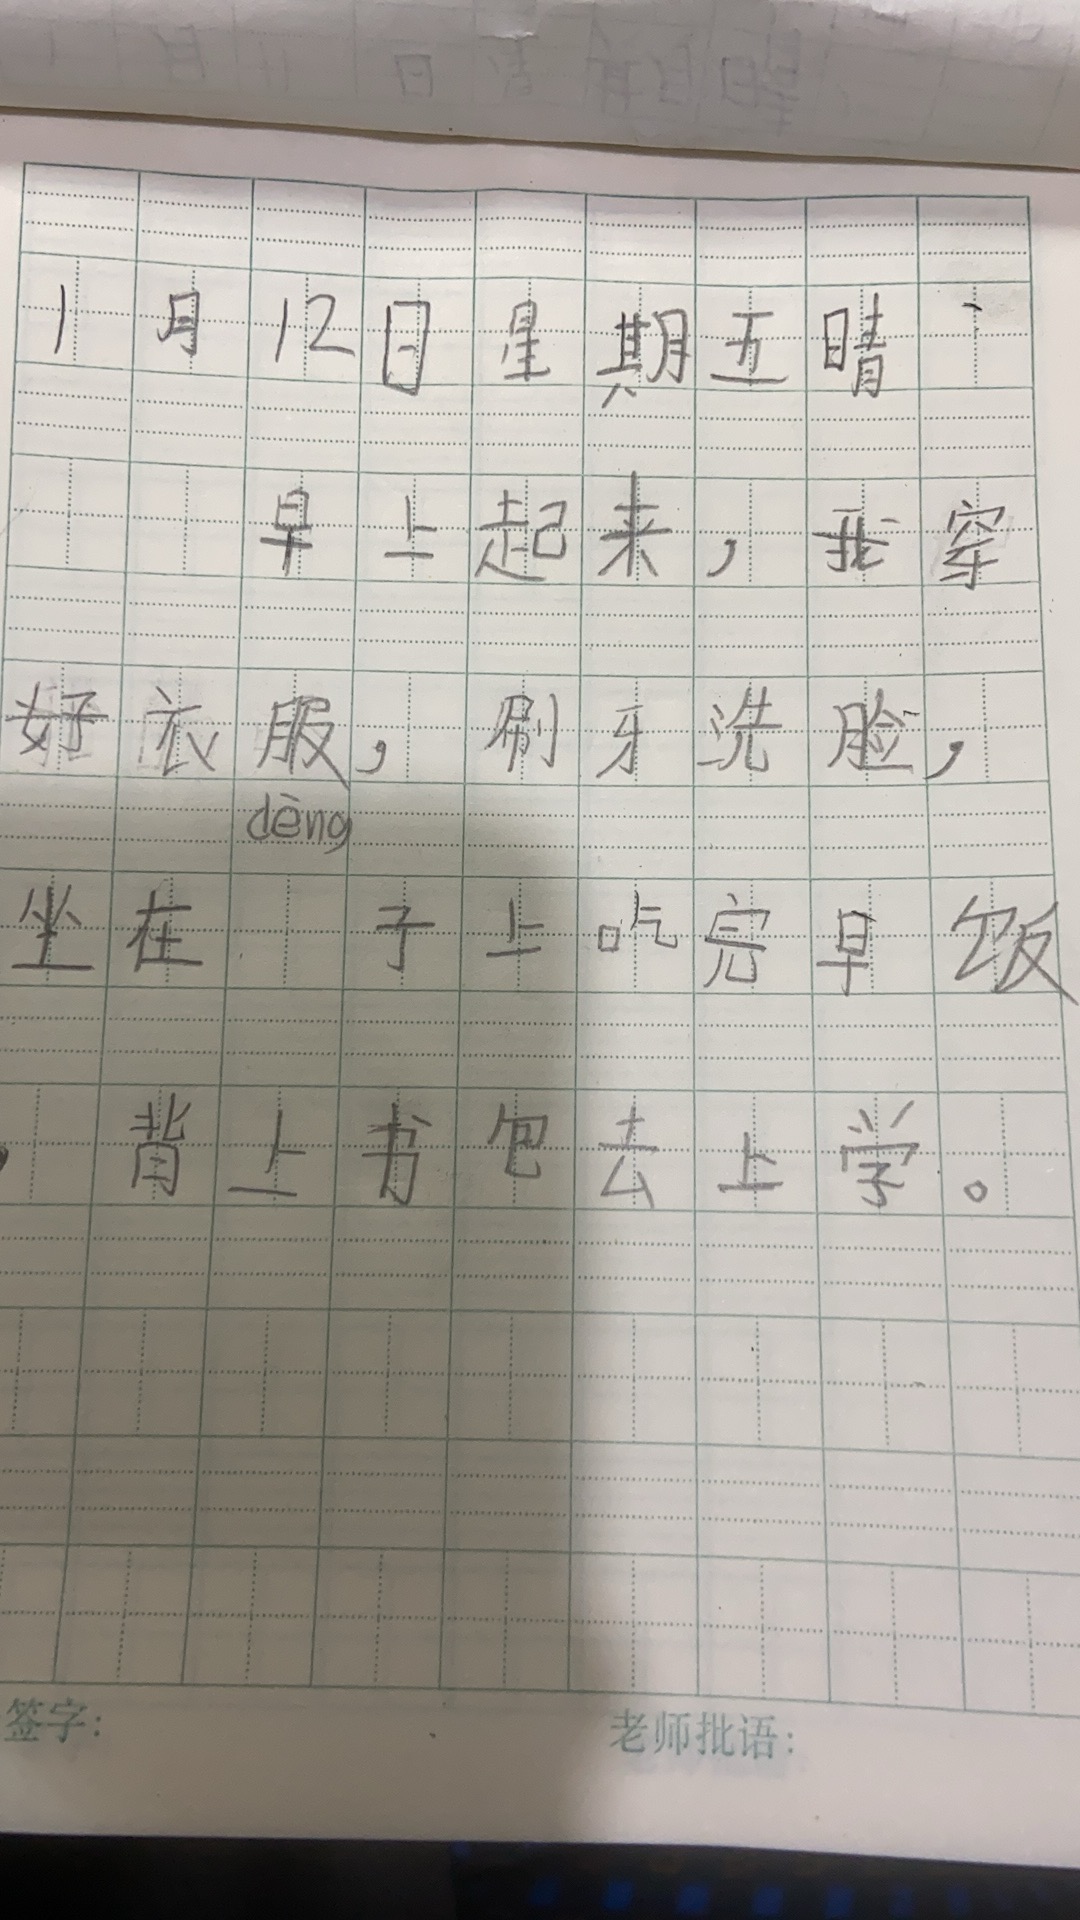 1月12日星期五晴
早上起来，我穿
好衣服，刷牙洗脸，
dèng
坐在 子上吃完早饭
，背上书包去上学。
签字：
老师批语：